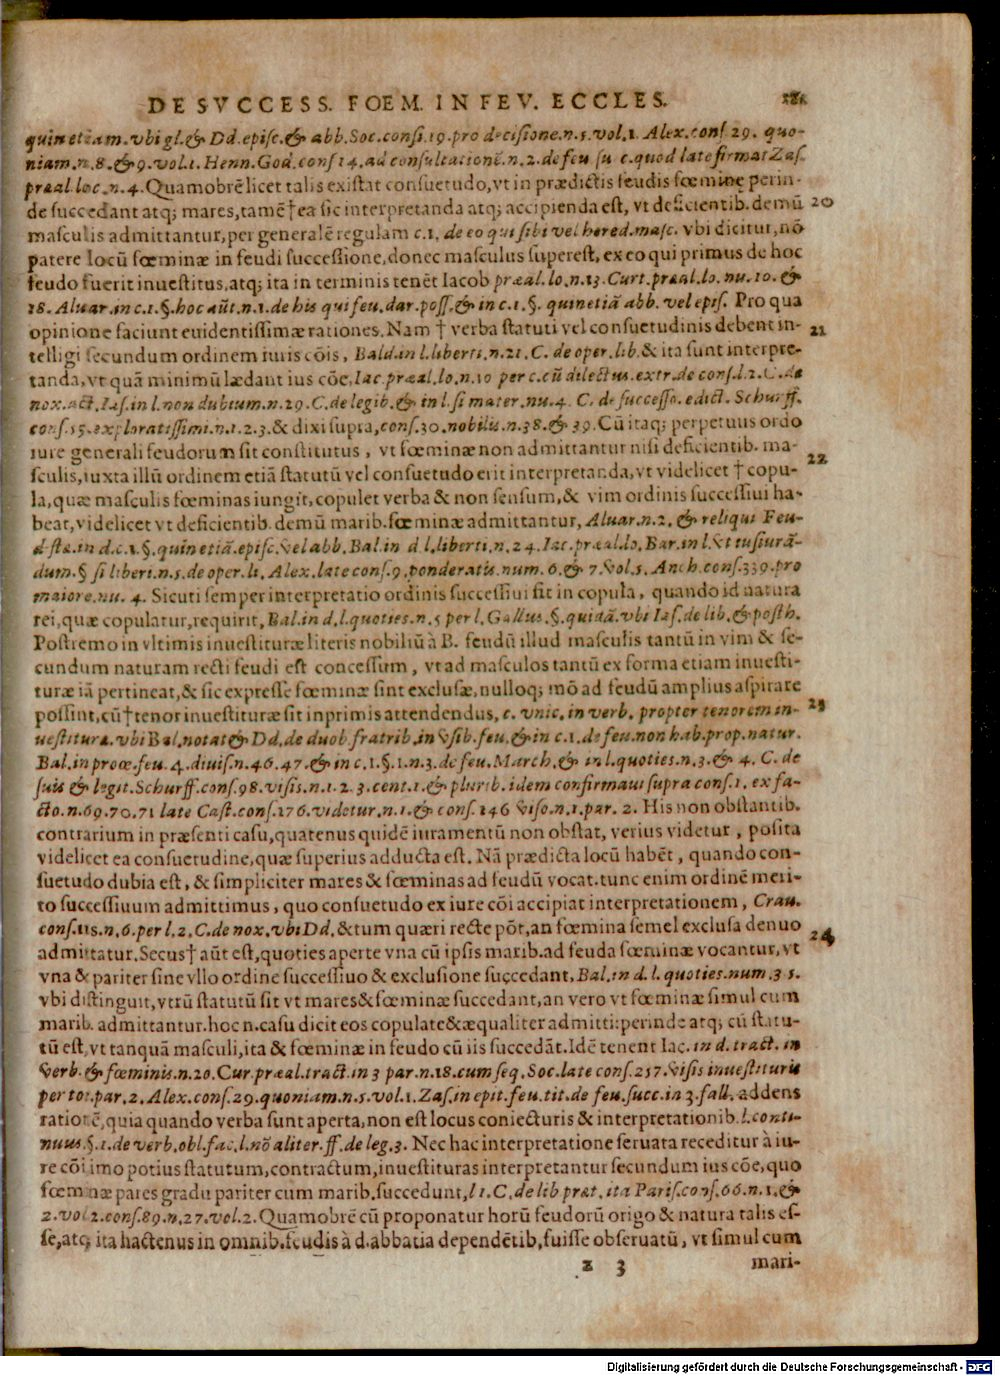 DE SVCCESS. FOEM. IN FEV. ECCLES. 181
quin etiam. vbi gl. & Dd. episc. & abb. Soc. consi. 19. pro decisione. n. 5. vol. 1. Alex. cons 29. quo-
niam. n. 8. & 9. vol. 1. Henn. God. cons 14. ad consultationē. n. 2. de feu su c. quod late firmat Zas.
præal. loc. n. 4. Quamobrē licet talis existat consuetudo, vt in prædictis feudis fœminę perin-
de succedant atq; mares, tamē † ea sic interpretanda atq; accipienda est, vt deficientib. demū 20
masculis admittantur, per generalē regulam c. 1. de eo qui sibi vel hered. masc. vbi dicitur, nō
patere locū fœminæ in feudi successione, donec masculus superest, ex eo qui primus de hoc
feudo fuerit inuestitus, atq; ita in terminis tenēt Iacob præal. lo. n. 13. Curt. præal. lo. nu. 10. &
18. Aluar. in c. 1. §. hoc aūt. n. 1. de his qui feu. dar. poss. & in c. 1. §. quinetiā abb. vel epis. Pro qua
opinione faciunt euidentissimæ rationes. Nam † verba statuti vel consuetudinis debent in- 21
telligi secundum ordinem iuris cōis, Bald. in l. liberti. n. 21. C. de oper. lib. & ita sunt interpre-
tanda, vt quā minimū lædant ius cōe, Iac. præal. lo. n. 10 per c. cū dilectus. extr. de cons. l. 2. C. de
nox. act. Ias. in l. non dubium. n. 29. C. de legib. & in l. si mater. nu. 4. C. de successo. edict. Schurff.
cons. 55. exploratissimi. n. 1. 2. 3. & dixi supra, cons. 30. nobilis. n. 38. & 39. Cū itaq; perpetuus ordo
iure generali feudorum sit constitutus, vt fœminæ non admittantur nisi deficientib. ma-
sculis, iuxta illū ordinem etiā statutū vel consuetudo erit interpretanda, vt videlicet † copu- 22
la, quæ masculis fœminas iungit, copulet verba & non sensum, & vim ordinis successiui ha-
beat, videlicet vt deficientib. demū marib. fœminæ admittantur, Aluar. n. 2. & reliqui Feu-
distæ. in d. c. 1. §. quin etiā. episc. vel abb. Bal. in d l. liberti. n. 24. Iac. præal. lo. Bar. in l. vt iusiurā-
dum. § si liberi. n. 5. de oper. li. Alex. late cons. 9. ponderatis. num. 6. & 7. vol. 5. Anch. cons. 339. pro
maiore. nu. 4. Sicuti semper interpretatio ordinis successiui fit in copula, quando id natura
rei, quæ copulatur, requirit, Bal. in d. l. quoties. n. 5 per l. Gallus. §. quidā. vbi Ias. de lib. & posth.
Postremo in vltimis inuestituræ literis nobiliū à B. feudū illud masculis tantū in vim & se-
cundum naturam recti feudi est concessum, vt ad masculos tantū ex forma etiam inuesti-
turæ iā pertineat, & sic expresse fœminæ sint exclusæ, nulloq; mō ad feudū amplius aspirare
possint, cū † tenor inuestituræ sit inprimis attendendus, c. vnic. in verb. propter tenorem in- 23
uestitura. vbi Bal. notat & Dd. de duob. fratrib. in vsib. feu. & in c. 1. de feu. non hab. prop. natur.
Bal. in proœ. feu. 4. diuis. n. 46. 47. & in c. 1. §. 1. n. 3. de feu. March. & in l. quoties. n. 3. & 4. C. de
suis & legit. Schurff. cons. 98. visis. n. 1. 2. 3. cent. 1. & plurib. idem confirmaui supra cons. 1. ex fa-
cto. n. 69. 70. 71 late Cast. cons. 176. videtur. n. 1. & cons. 146 viso. n. 1. par. 2. His non obstantib.
contrarium in præsenti casu, quatenus quidē iuramentū non obstat, verius videtur, posita
videlicet ea consuetudine, quæ superius adducta est. Nā prædicta locū habēt, quando con-
suetudo dubia est, & simpliciter mares & fœminas ad feudū vocat. tunc enim ordinē meri-
to successiuum admittimus, quo consuetudo ex iure cōi accipiat interpretationem, Crau.
cons. 115. n. 6. per l. 2. C. de nox. vbi Dd. & tum quæri recte pōt, an fœmina semel exclusa denuo
admittatur. Secus † aūt est, quoties aperte vna cū ipsis marib. ad feuda fœminæ vocantur, vt 24
vna & pariter sine vllo ordine successiuo & exclusione succedant, Bal. in d. l. quoties. num. 3 5.
vbi distinguit, vtrū statutū sit vt mares & fœminæ succedant, an vero vt fœminæ simul cum
marib. admittantur. hoc n. casu dicit eos copulate & æqualiter admitti: perinde atq; cū statu-
tū est, vt tanquā masculi, ita & fœminæ in feudo cū iis succedāt. Idē tenent Iac. in d. tract. in
verb. & fœminis. n. 20. Cur. præal. tract. in 3 par. n. 18. cum seq. Soc. late cons. 257. visis inuestituris
per tot. par. 2. Alex. cons. 29. quoniam. n. 5. vol. 1. Zas. in epit. feu. tit. de feu. succ. in 3. fall. addens
rationē, quia quando verba sunt aperta, non est locus coniecturis & interpretationib. l. conti-
nuus §. 1. de verb. obl. fac. l. nō aliter. ff. de leg. 3. Nec hac interpretatione seruata receditur à iu-
re cōi imo potius statutum, contractum, inuestituras interpretantur secundum ius cōe, quo
fœminæ pares gradu pariter cum marib. succedunt, l 1. C. de lib præt. ita Paris. cons. 66. n. 1. &
2. vol 2. cons. 89. n. 27. vol. 2. Quamobrē cū proponatur horū feudorū origo & natura talis es-
se, atq; ita hactenus in omnib. feudis à d. abbatia dependētib. fuisse obseruatū, vt simul cum
z 3 mari-
Digitalisierung gefördert durch die Deutsche Forschungsgemeinschaft - DFG